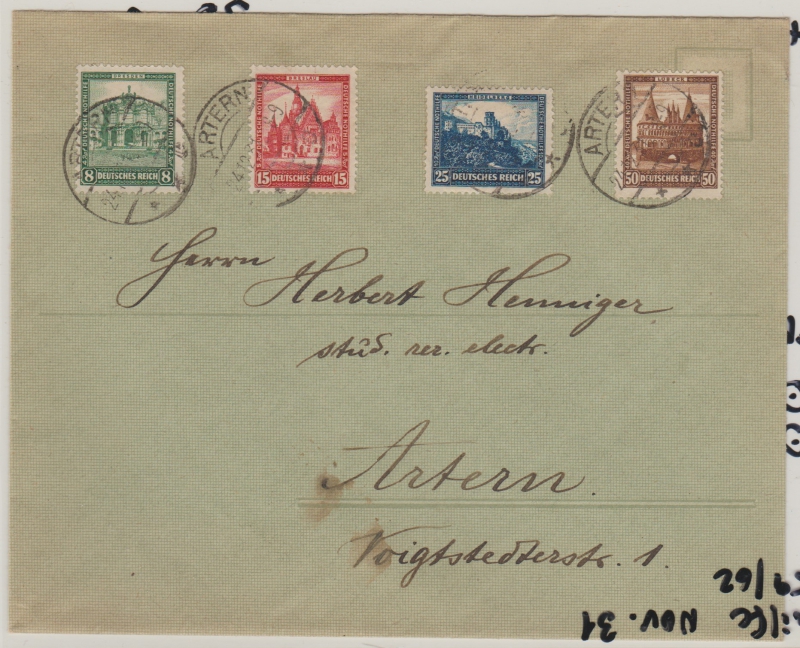 DRESDEN
DEUTSCHE NOTHILFE
8 DEUTSCHES REICH 8
BRESLAU
DEUTSCHE NOTHILFE
15 DEUTSCHES REICH 15
HEIDELBERG
DEUTSCHE NOTHILFE
25 DEUTSCHES REICH 25
LÜBECK
DEUTSCHE NOTHILFE
50 DEUTSCHES REICH 50
ARTERN
ARTERN
ARTERN
Herrn Herbert Henniger
stud. rer. electr.
Artern.
Voigtstedterstr. 1.
NOV. 31